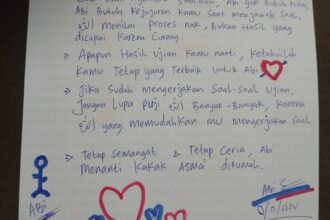 Abi Butuh Kejujuran Kamu saat menjawab Soal,
الله menilai Proses nak, Bukan Hasil yang
dicapai Karena Curang
➤ Apapun Hasil Ujian Kamu nanti, Ketahuilah
Kamu Tetap yang Terbaik untuk Abi
➤ Jika Sudah mengerjakan Soal-Soal Ujian,
Jangan Lupa Puji الله Banyak-Banyak, Karena
الله yang memudahkan mu mengerjakan Soal
➤ Tetap Semangat & Tetap Ceria, Abi
Menanti Kakak Asma' dirumah.
ABi
Abi S